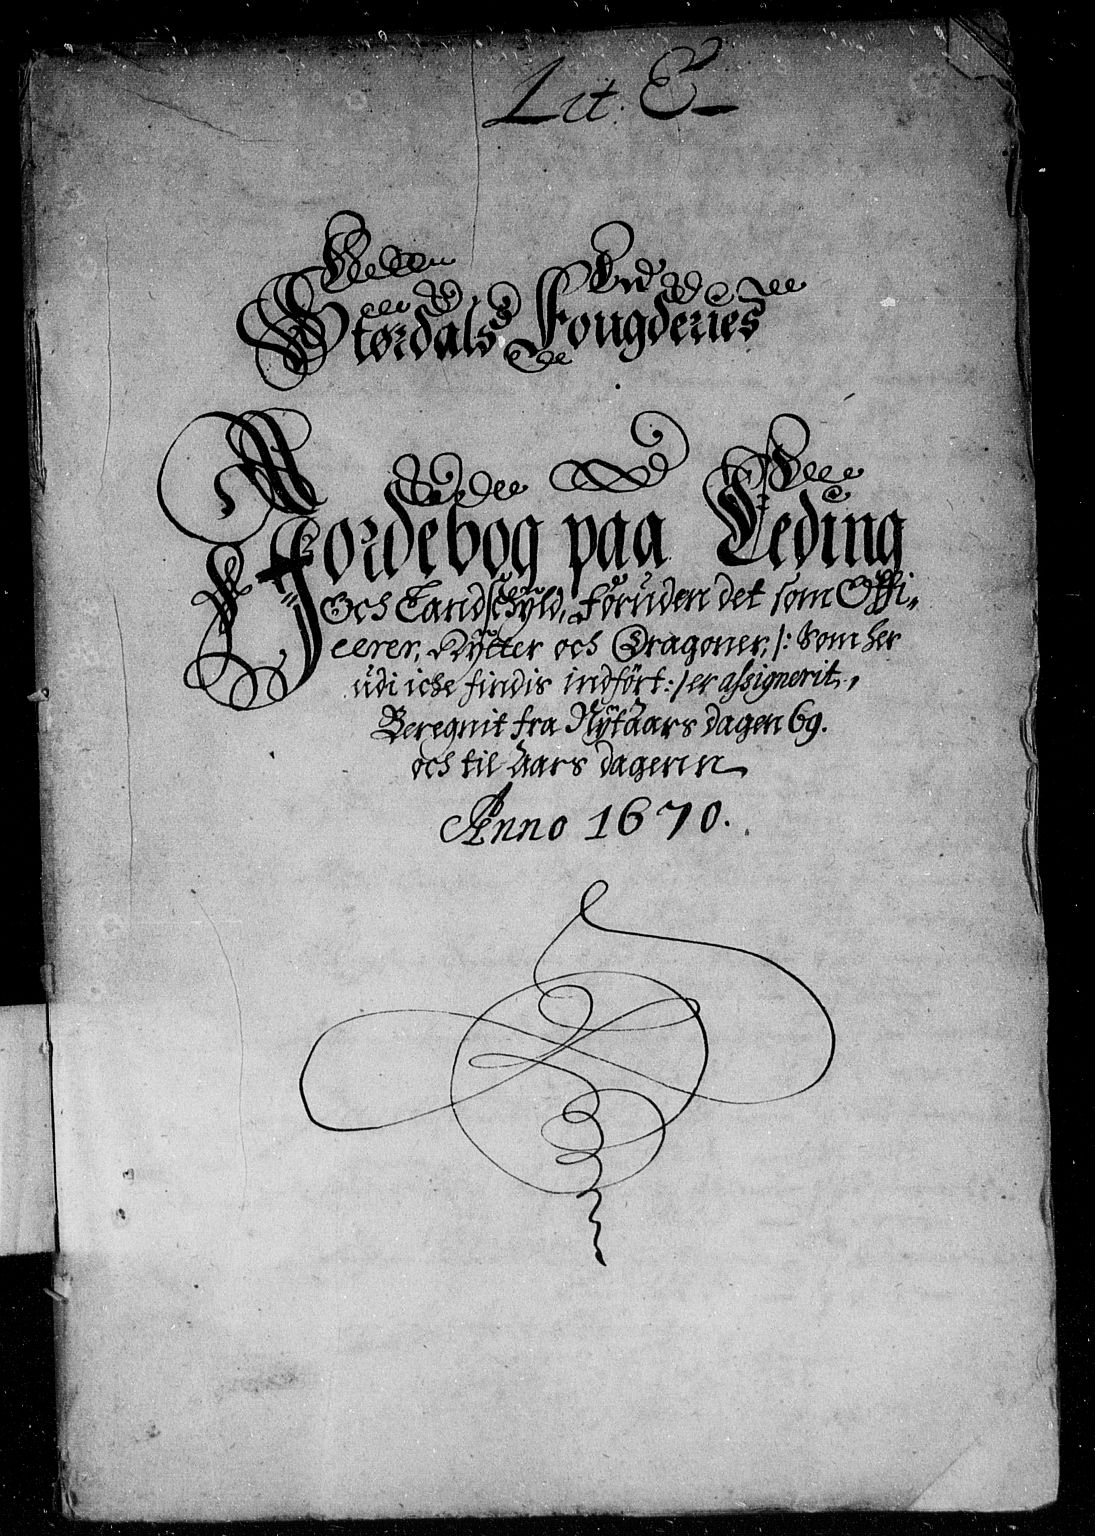 Lit: E
Størdals Fougderies
Jordebog paa Leding
Och Landschÿld, Foruden det som Offi„
cerer, Rÿtter och Dragoner, /: Som her
udi iche findis indført: / er assignerit,
Beregnit fra Nÿtaars dagen 69.
och til Aars dagenn
Anno 1670.